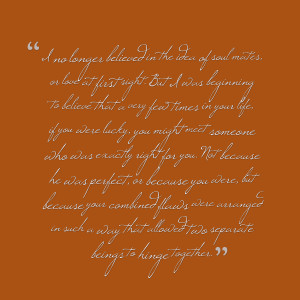 “I no longer believed in the idea of soul mates,
or love at first sight. But I was beginning
to believe that a very few times in your life,
if you were lucky, you might meet someone
who was exactly right for you. Not because
he was perfect, or because you were, but
because your combined flaws were arranged
in such a way that allowed two separate
beings to hinge together.”